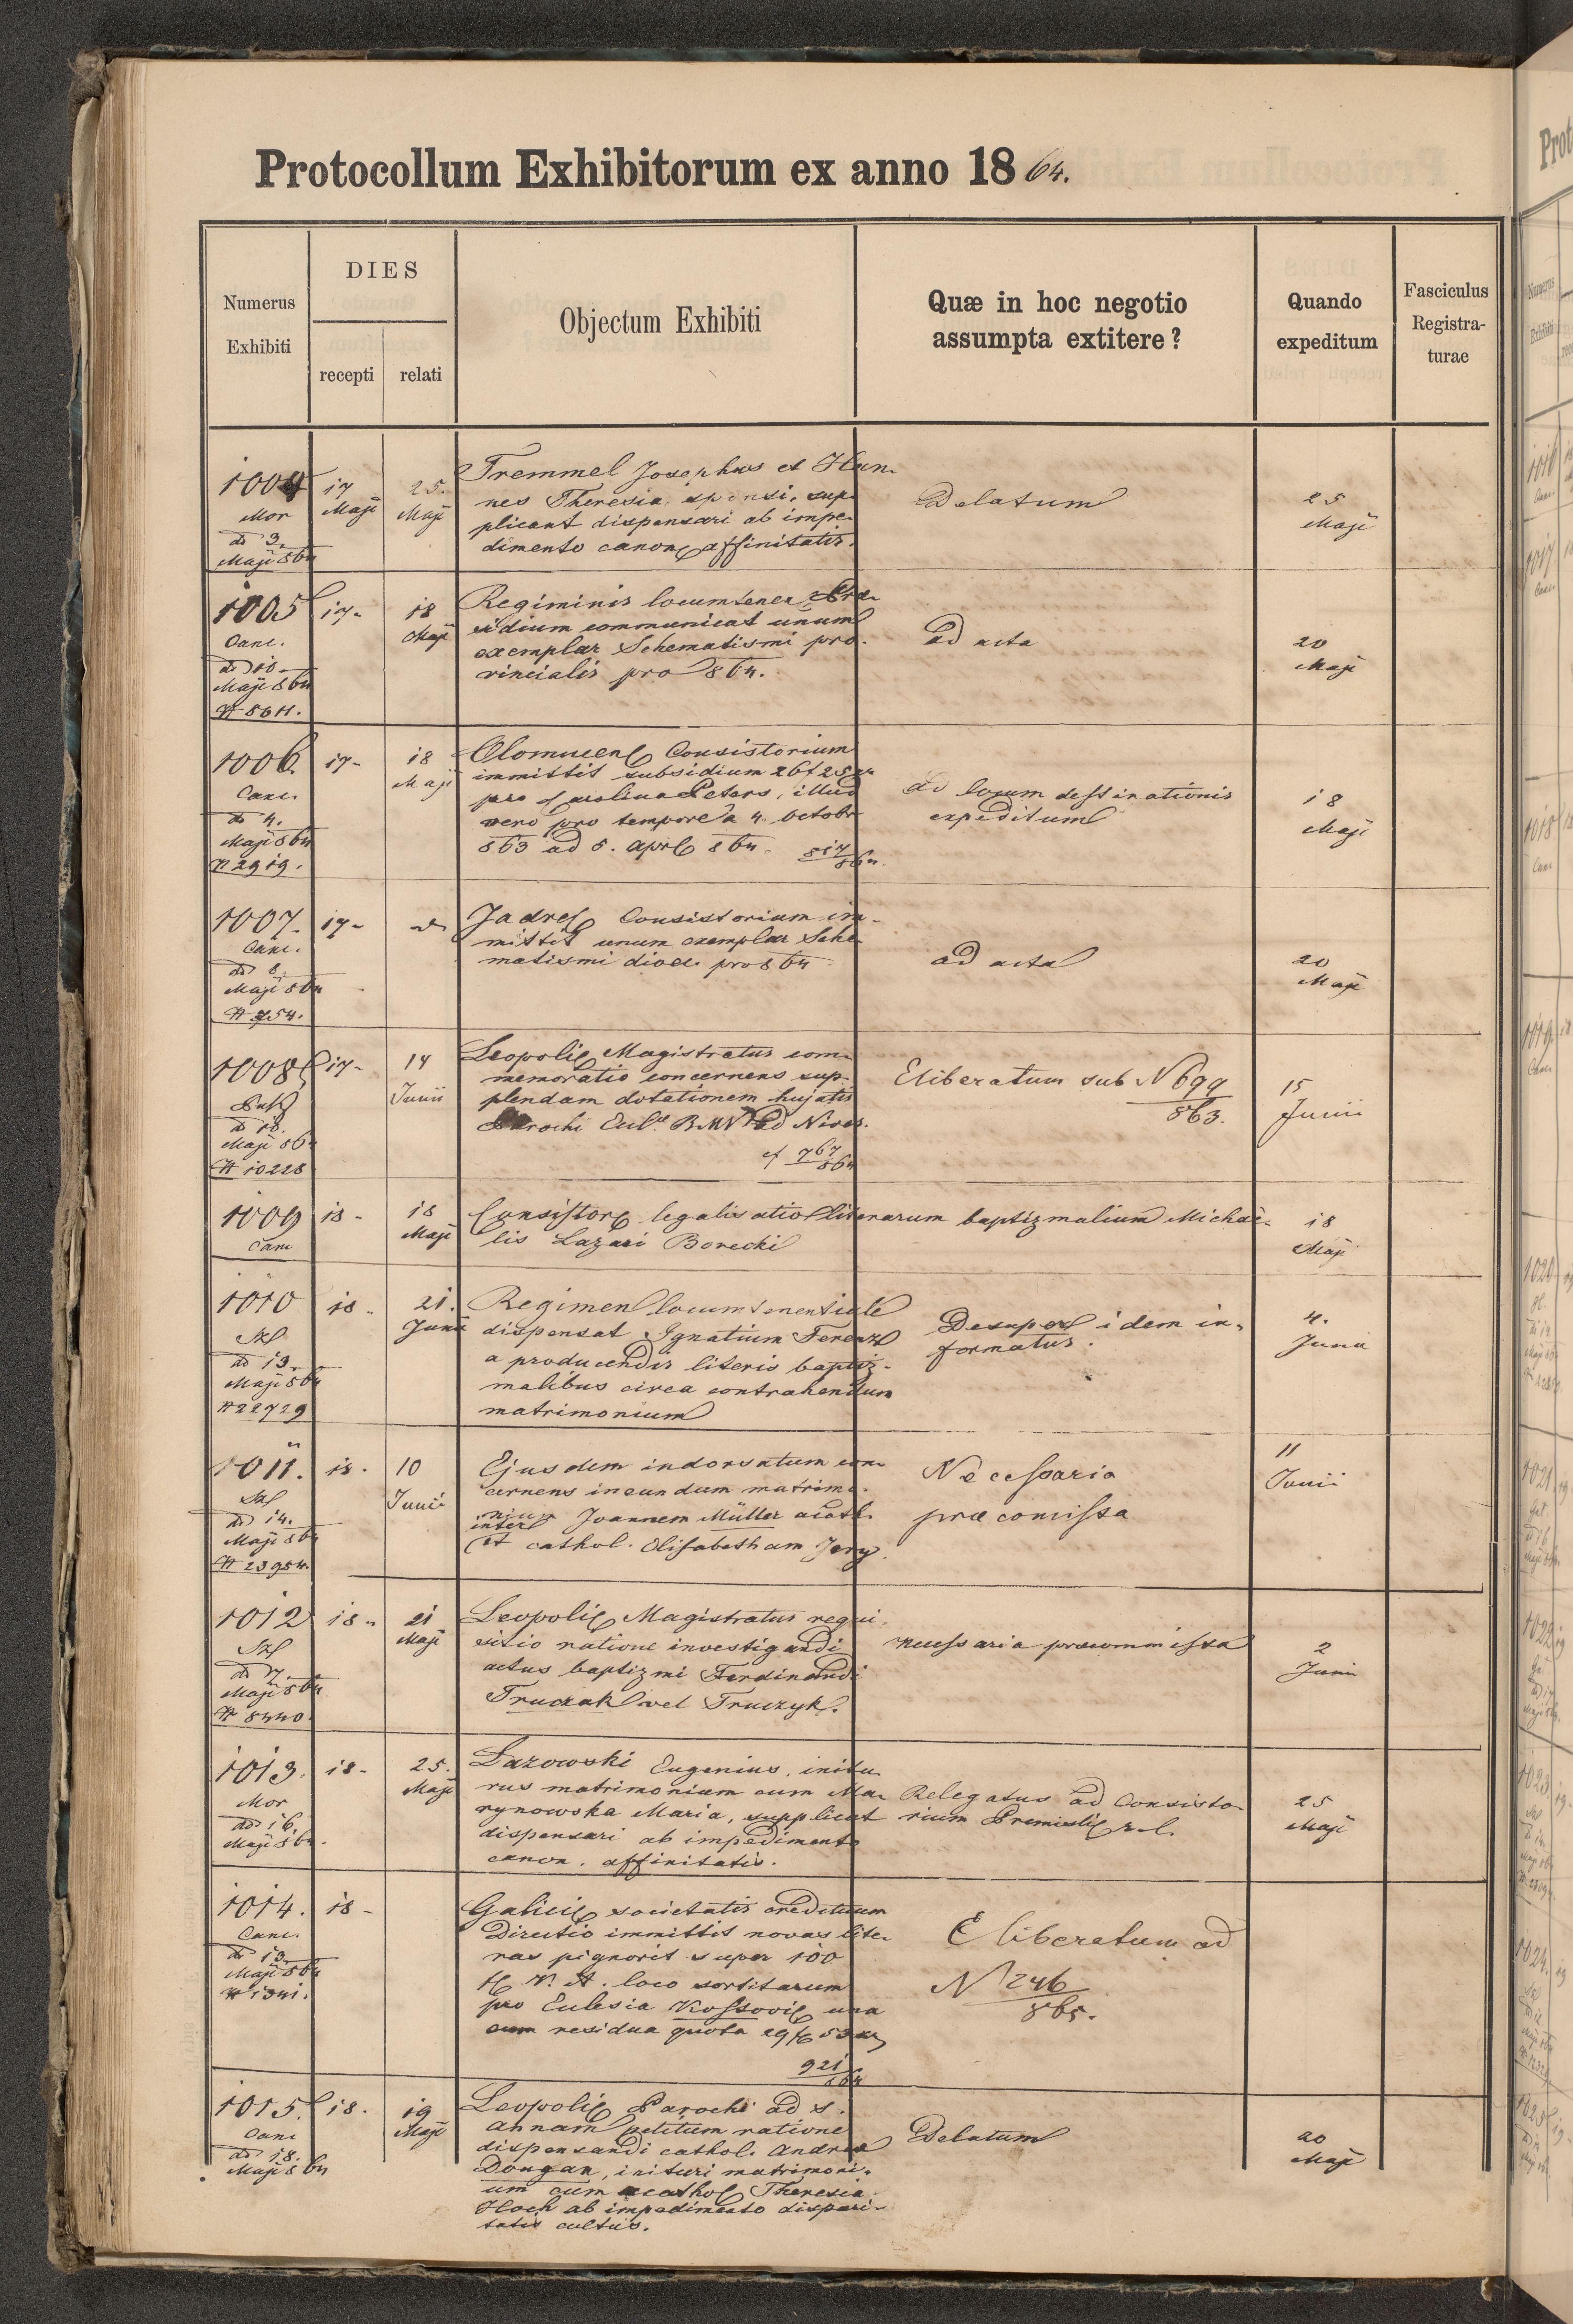 Protocollum Exhibitorum ex anno 1864.
Numerus Exhibiti
DIES
recepti
relati
Objectum Exhibiti
Quæ in hoc negotio
assumpta extitere?
Quando
expeditum
Fasciculus
Registra-
turae
1004
Mor
dd 3.
Maji 864
17
Maji
25.
Maji
Tremmel Josephus et Han-
nes Theresia sponsi, sup-
plicant dispensari ab impe-
dimento canon. affinitatis.
Delatum
25
Maji
1005
Canc.
dd 10
Maji 864
N 5611.
17-
18
Maji
Regiminis locumtenen. Prae-
sidium communicat unum
exemplar Schematismi pro-
vincialis pro 864.
ad acta
20
Maji
1006.
Canc.
dd 4.
Maji 864
N 2919.
17-
18
Maji
Olomucen. Consistorium
immittit subsidium 26 f 25 x
pro Carolina Peters, illud
vero pro tempore a 4. octobr
863 ad 5. april 864. 817/864
ad locum destinationis
expeditum
18
Maji
1007.
Canc.
dd 8.
Maji 864
N 754.
17-
Jadres. Consistorium im-
mittit unum exemplar Sche-
matismi dioec. pro 864
ad acta
20
Maji
1008
dd 18.
Maji 864
N 10228
17-
14
Junii
Leopolis. Magistratus com-
memoratio concernens sup-
plendam dotationem hujatis
Parochi Eccl. B.M.V. ad Nives.
cf 767/864
Eliberatum sub N 699/863.
15
Junii
1009
Canc
18-
18
Maji
Consistor. legalisatio literarum baptizmalium Michaë-
lis Lazari Borecki
18
Maji
1010
Szl
dd 13.
Maji 864
N 22729
18-
21.
Junii
Regimen locumtenentiale
dispensat Ignatium Ferenz
a producendis literis baptiz-
malibus circa contrahendum
matrimonium
Desuper idem in-
formatus.
4.
Junii
1011.
Szl
dd 14.
Maji 864
N 23954.
18.
10
Junii
Ejusdem indorsatum con-
cernens ineundum matrimo-
nium
inter Joannem Müller acath.
et cathol. Elisabetham Jeny.
Necessaria
præcomissa
11
Junii
1012
Szl
dd 7.
Maji 864
N 8440.
18-
21
Maji
Leopolis. Magistratus requi-
sitio ratione investigandi
actus baptizmi Ferdinandi
Truczak vel Truczyk.
necessaria præcommissa
2
Junii
1013.
Mor
dd 16.
Maji 864.
18-
25.
Maji
Lazowski Eugenius, initu-
rus matrimonium cum Ma-
rynowska Maria, supplicat
dispensari ab impedimento
canon. affinitatis.
Relegatus ad Consisto-
rium Premisl. r. l.
25
Maji
1014.
Canc.
dd 13.
Maji 864
N 1341.
18-
Galicis. societatis creditium
Directio immittit novas lite-
ras pignorit super 100
fl V. A. loco sortitarum
pro Eclesia Kossovis. una
cum residua quota 29 fl 53 x
921/864
Eliberatum ad
N 246/865.
1015.
Canc
dd 18.
Maji 864
18.
19
Maji
Leopolis. Parochi ad S.
Annam petitum ratione
dispensandi cathol. Andrea
Dougan, inituri matrimoni-
um cum acathol. Theresia
Hoch ab impedimento dispari-
tatis cultus.
Delatum
20
Maji